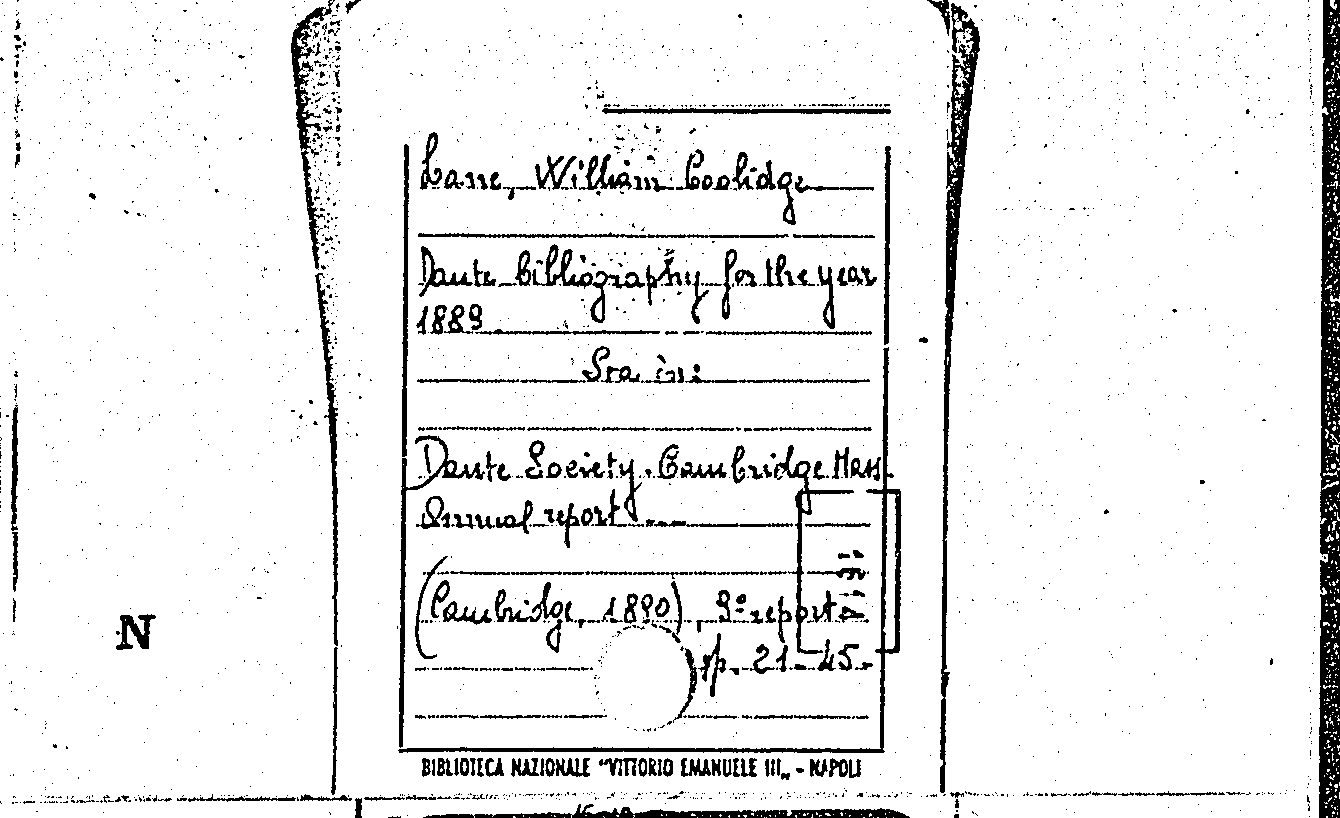 Lane, William Coolidge
Dante bibliography for the year
1889.
Sta in:
Dante Society. Cambridge Mass.
Annual report ...
(Cambridge, 1890), 9º report
pp. 21-45.
N
BIBLIOTECA NAZIONALE "VITTORIO EMANUELE III„ - NAPOLI